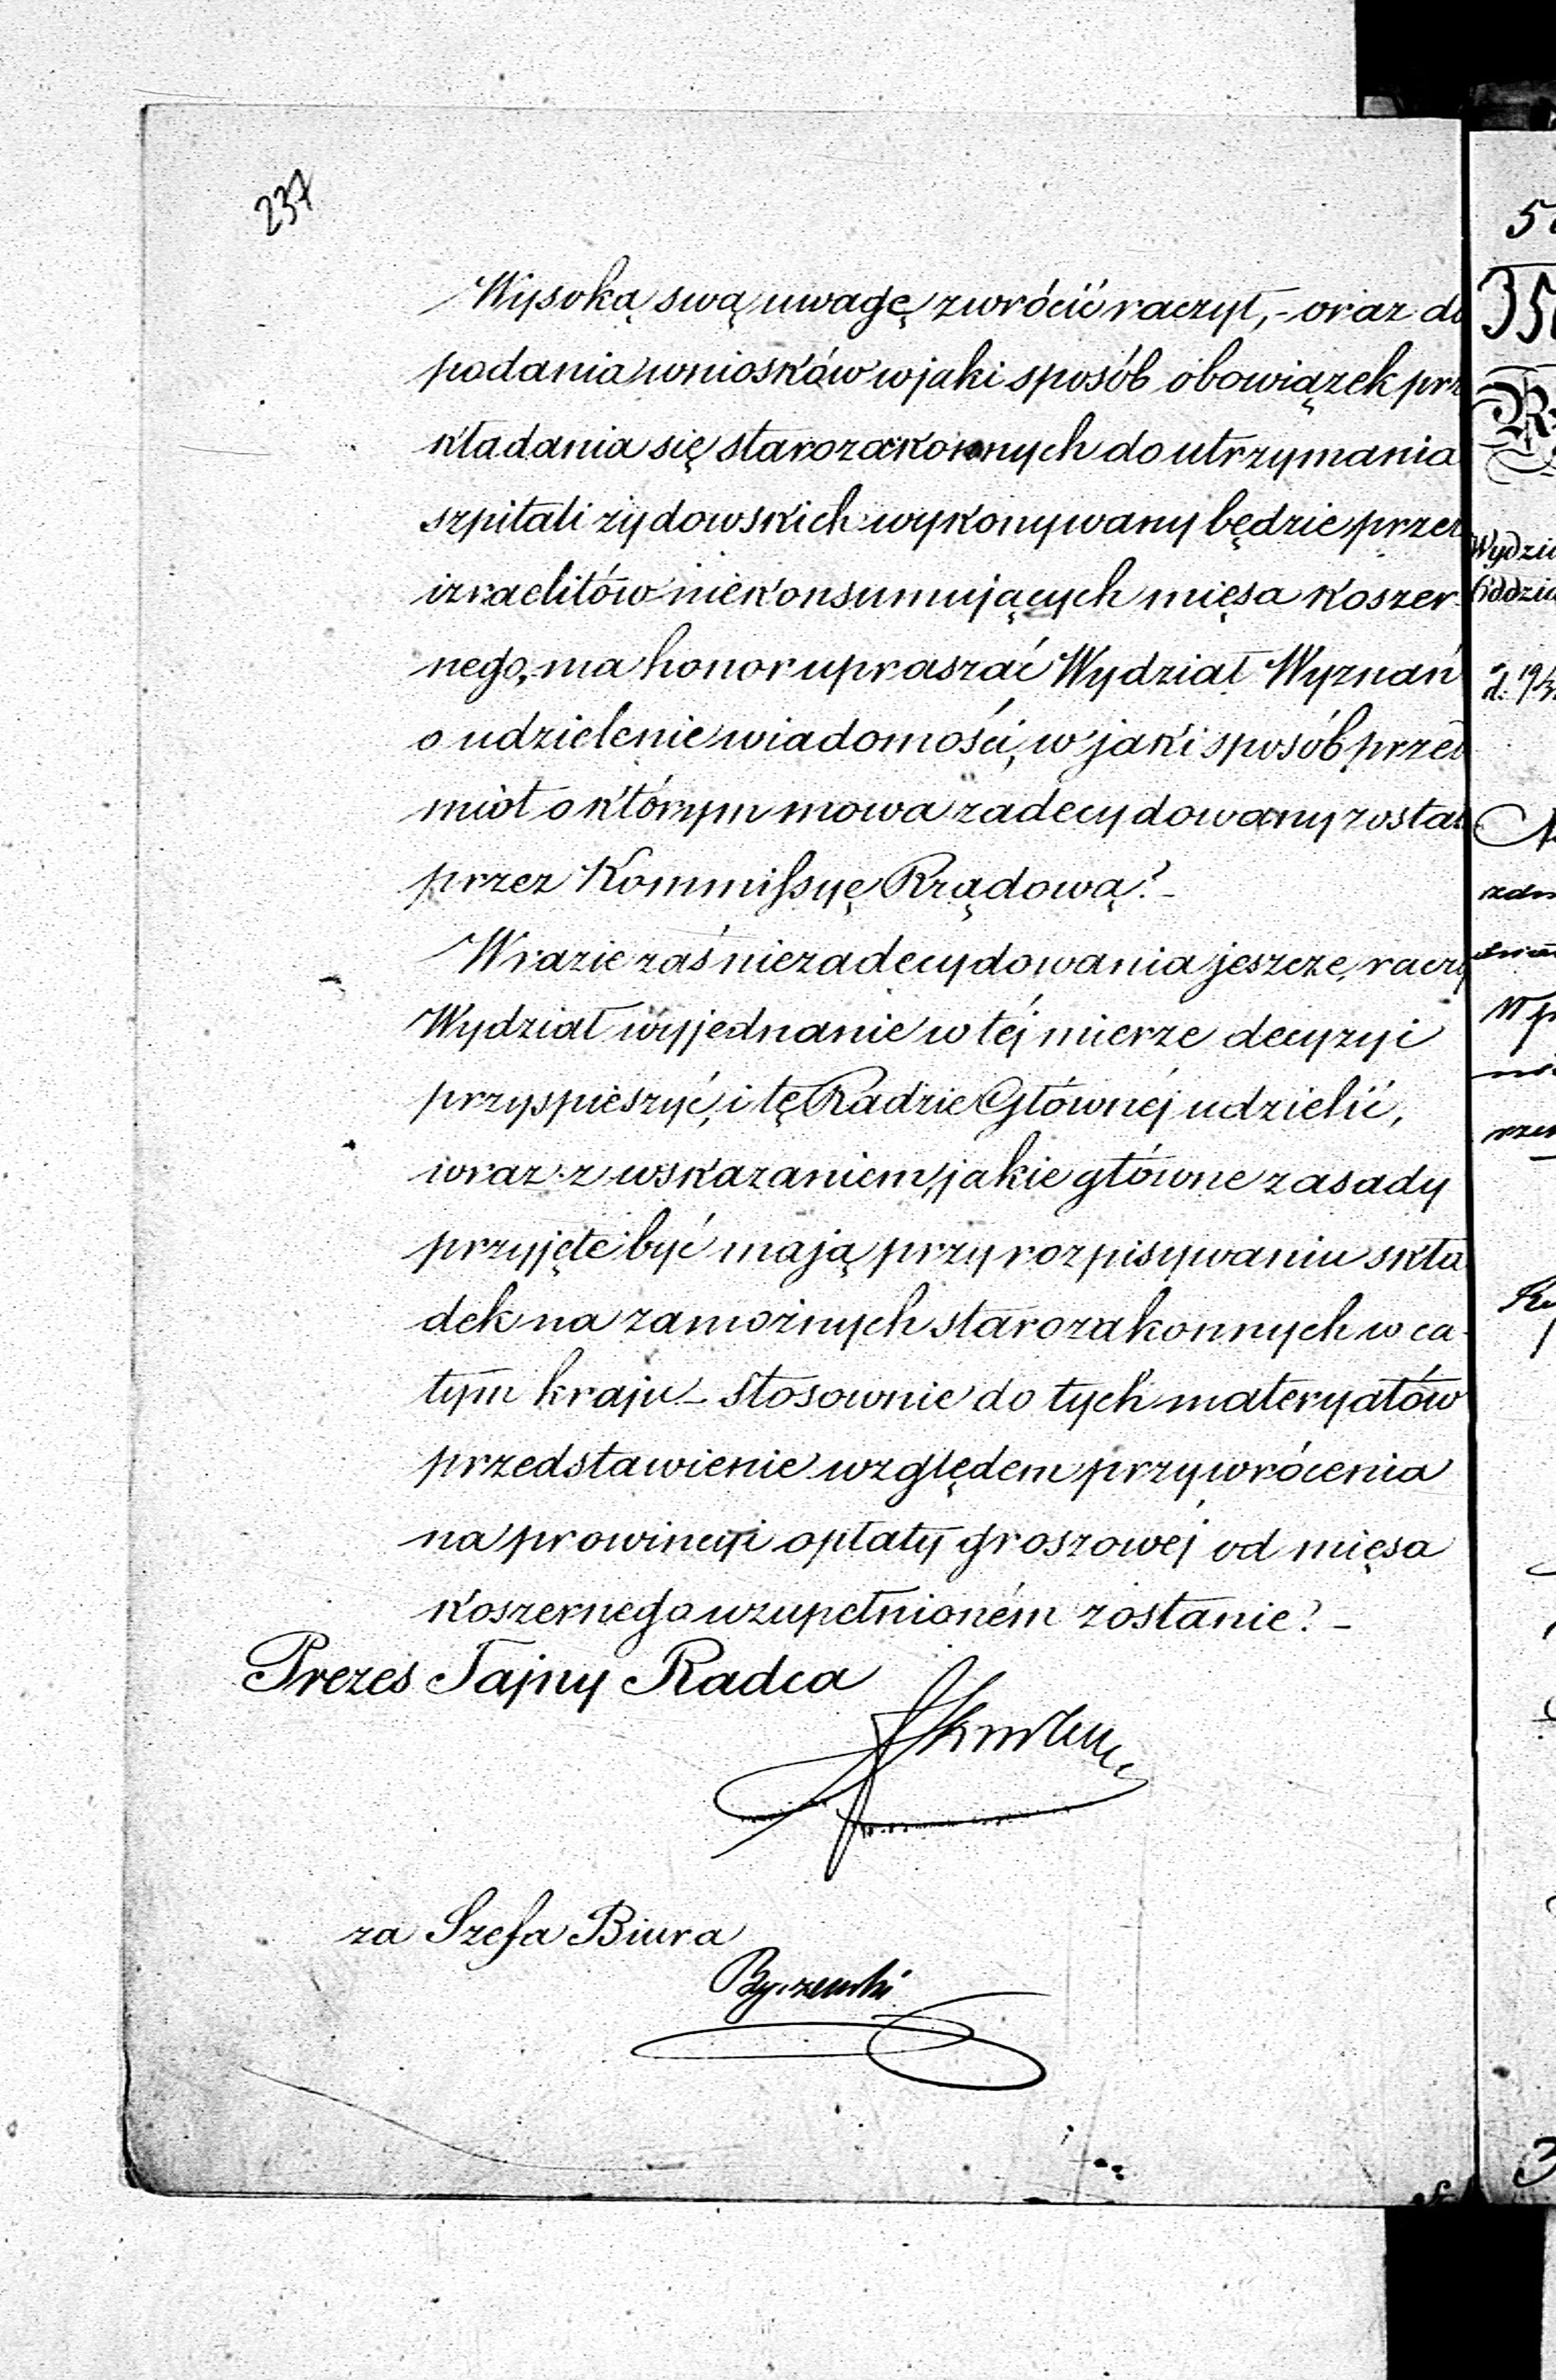 237
Wysoką swą uwagę zwrócić raczył, - oraz do
podania wniosków w jaki sposób obowiązek prz
kładania się starozakonnych do utrzymania
szpitali żydowskich wykonywany będzie przez
izraelitów niekonsumujących mięsa koszer-
nego, ma honor upraszać Wydział Wyznań
o udzielenie wiadomości, w jaki sposób przed
miot o którym mowa zadecydowany został
przez Kommissyę Rządową? -
W razie zaś niezadecydowania jeszcze, raczy
Wydział wyjednanie w téj mierze decyzyi
przyspieszyć, i tę Radzie Głównéj udzielić,
wraz z wskazaniem, jakie główne zasady
przyjęte być mają przy rozpisywaniu skła
dek na zamożnych starozakonnych w ca-
łym kraju - stosownie do tych materyałów
przedstawienie względem przywrócenia
na prowincyi opłaty groszowéj od mięsa
koszernego uzupełnioném zostanie? -
Prezes Tajny Radca
za Szefa Biura